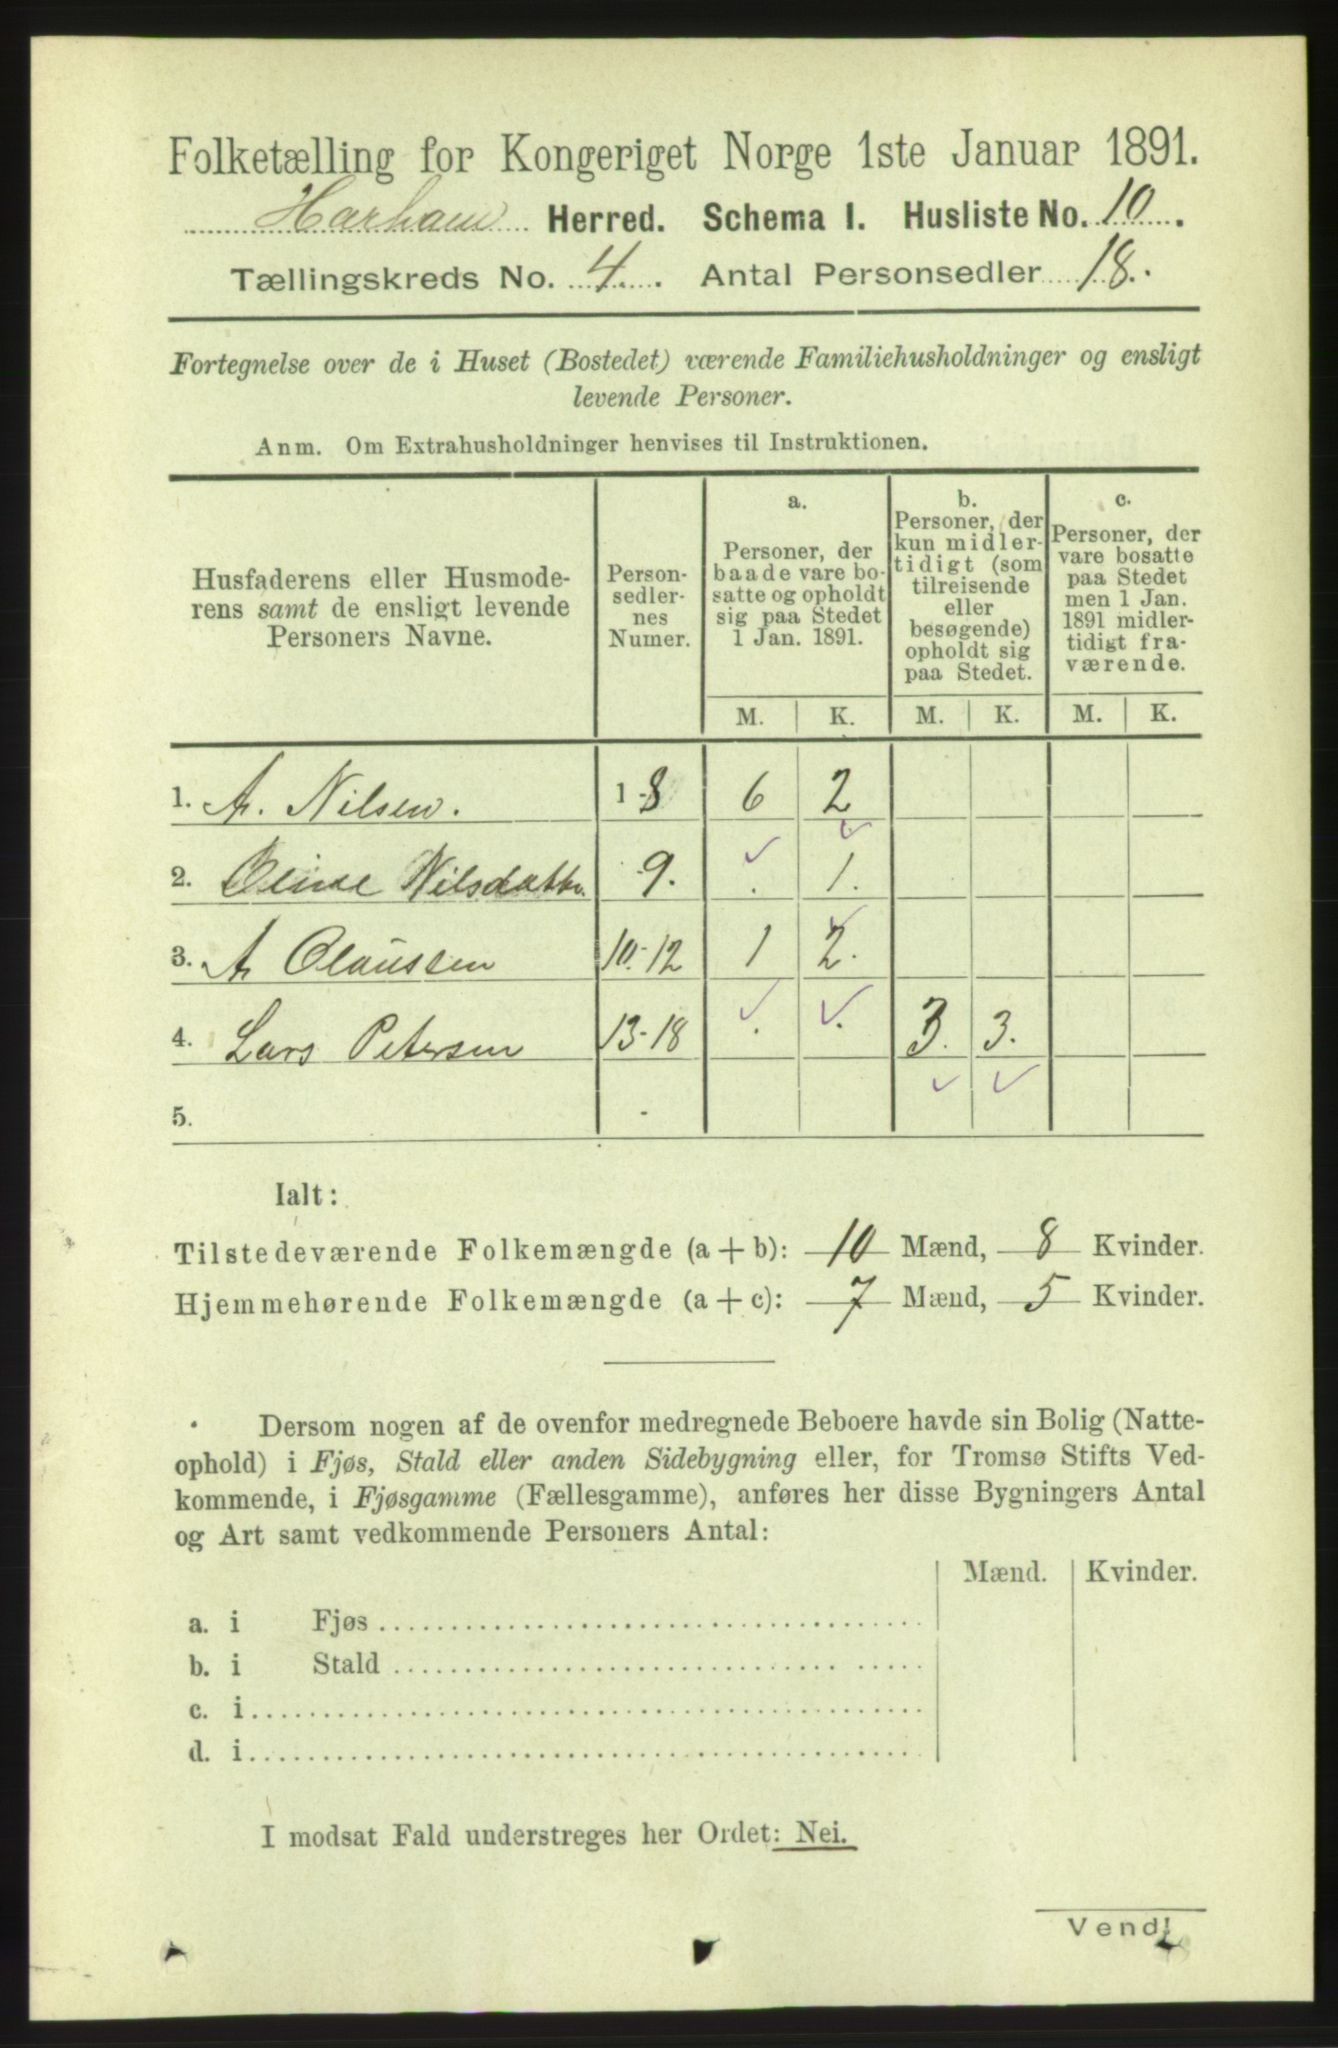 Folketælling for Kongeriget Norge 1ste Januar 1891.
Harham Herred. Schema I. Husliste No. 10.
Tællingskreds No. 4. Antal Personsedler 18.
Fortegnelse over de i Huset (Bostedet) værende Familiehusholdninger og ensligt
levende Personer.
Anm. Om Extrahusholdninger henvises til Instruktionen.
Husfaderens eller Husmode-
rens samt de ensligt levende
Personers Navne.
Person-
sedler-
nes
Numer.
a.
Personer, der
baade vare bo-
satte og opholdt
sig paa Stedet
1 Jan. 1891.
b.
Personer, der
kun midler-
tidigt (som
tilreisende
eller
besøgende)
opholdt sig
paa Stedet.
c.
Personer, der
vare bosatte
paa Stedet
men 1 Jan.
1891 midler-
tidigt fra-
værende.
M. K. M. K. M. K.
1. A. Nilsen. 1-8 6 2
2. Oline Nilsdatter. 9. . 1.
3. A Claussen 10-12 1 2.
4. Lars Petersen 13-18 . . 3. 3.
5. -
Ialt:
Tilstedeværende Folkemængde (a + b): 10 Mænd, 8 Kvinder.
Hjemmehørende Folkemængde (a + c): 7 Mænd, 5 Kvinder.
Dersom nogen af de ovenfor medregnede Beboere havde sin Bolig (Natte-
ophold) i Fjøs, Stald eller anden Sidebygning eller, for Tromsø Stifts Ved-
kommende, i Fjøsgamme (Fællesgamme), anføres her disse Bygningers Antal
og Art samt vedkommende Personers Antal:
Mænd. Kvinder.
a. i Fjøs
b. i Stald
c. i
d. i
I modsat Fald understreges her Ordet: Nei.
Vend!